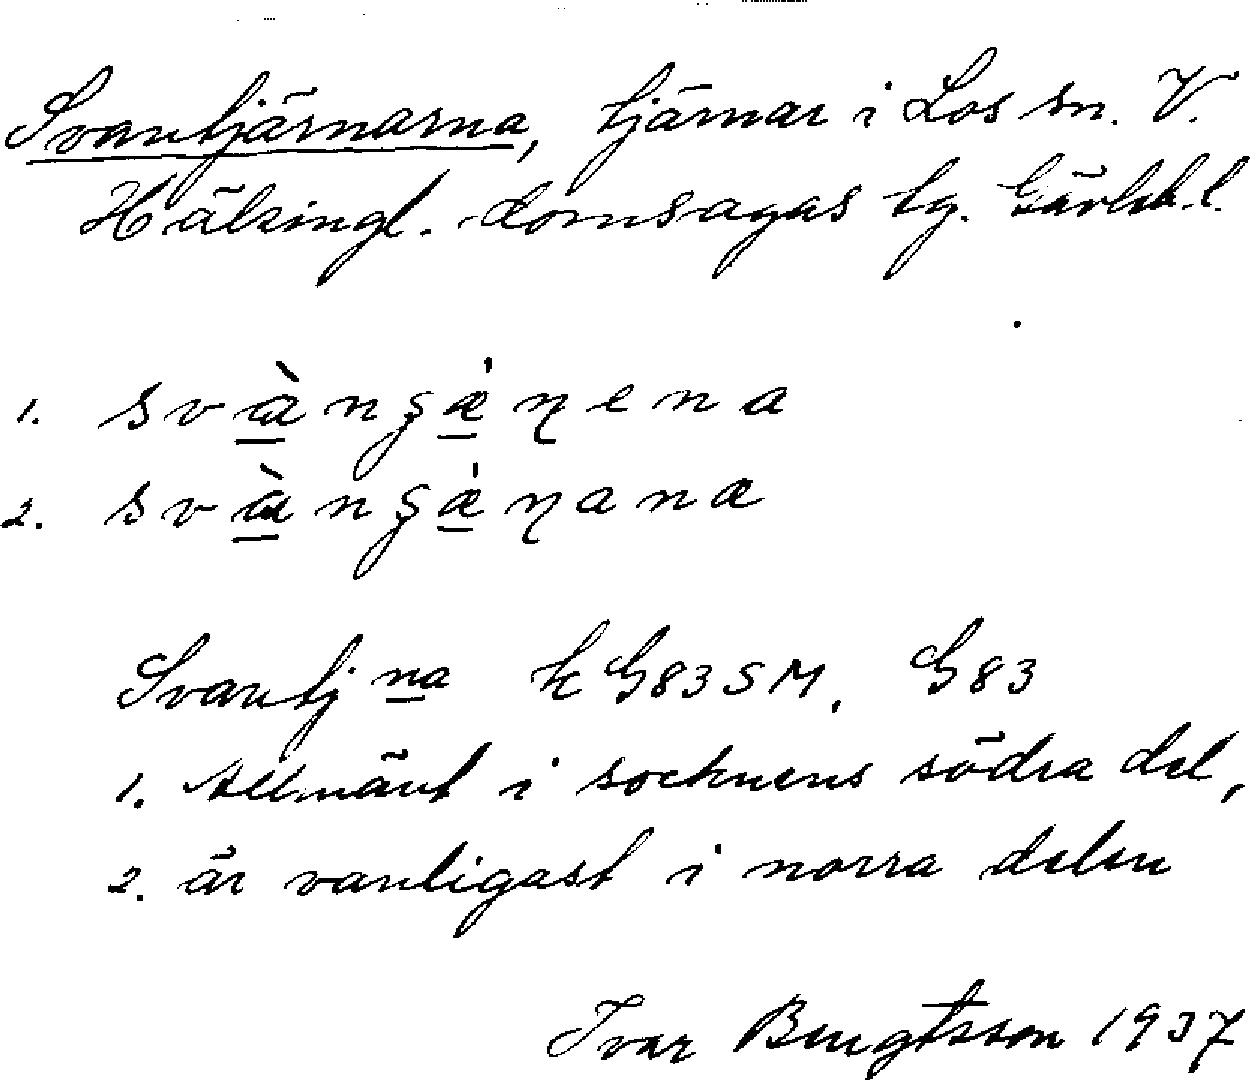 Svantjärnarna, tjärnar i Los sn. V.
Hälsingl. domsagas tg. Gävleb.l.
1. svæ̀nʂǽɳena
2. svæ̀nʂǽɳana
Svantj na k G83SM, G83
1. Allmänt i socknens södra del,
2. är vanligast i norra delen
Ivar Bengtsson 1937